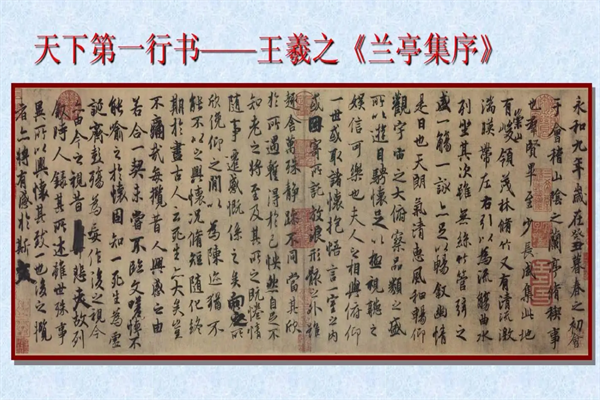 天下第一行书——王羲之《兰亭集序》
永和九年歲在癸丑暮春之初會
于會稽山陰之蘭亭脩禊事
也群賢畢至少長咸集此地
有崇山峻領茂林脩竹又有清流激
湍暎帶左右引以為流觴曲水
列坐其次雖無絲竹管弦之
盛一觴一詠亦足以暢敘幽情
是日也天朗氣清惠風和暢仰
觀宇宙之大俯察品類之盛
所以遊目騁懷足以極視聽之
娛信可樂也夫人之相與俯仰
一世或取諸懷抱悟言一室之內
或因寄所託放浪形骸之外雖
趣舍萬殊靜躁不同當其欣
於所遇蹔得於己怏然自足不
知老之將至及其所之既惓情
隨事遷感慨係之矣向之所
欣俛仰之閒以為陳迹猶不
能不以之興懷況脩短隨化終
期於盡古人云死生亦大矣豈
不痛哉每攬昔人興感之由
若合一契未嘗不臨文嗟悼不
能喻之於懷固知一死生為虛
誕齊彭殤為妄作後之視今
亦由今之視昔悲夫故列
敘時人錄其所述雖世殊事
異所以興懷其致一也後之攬
者亦將有感於斯文